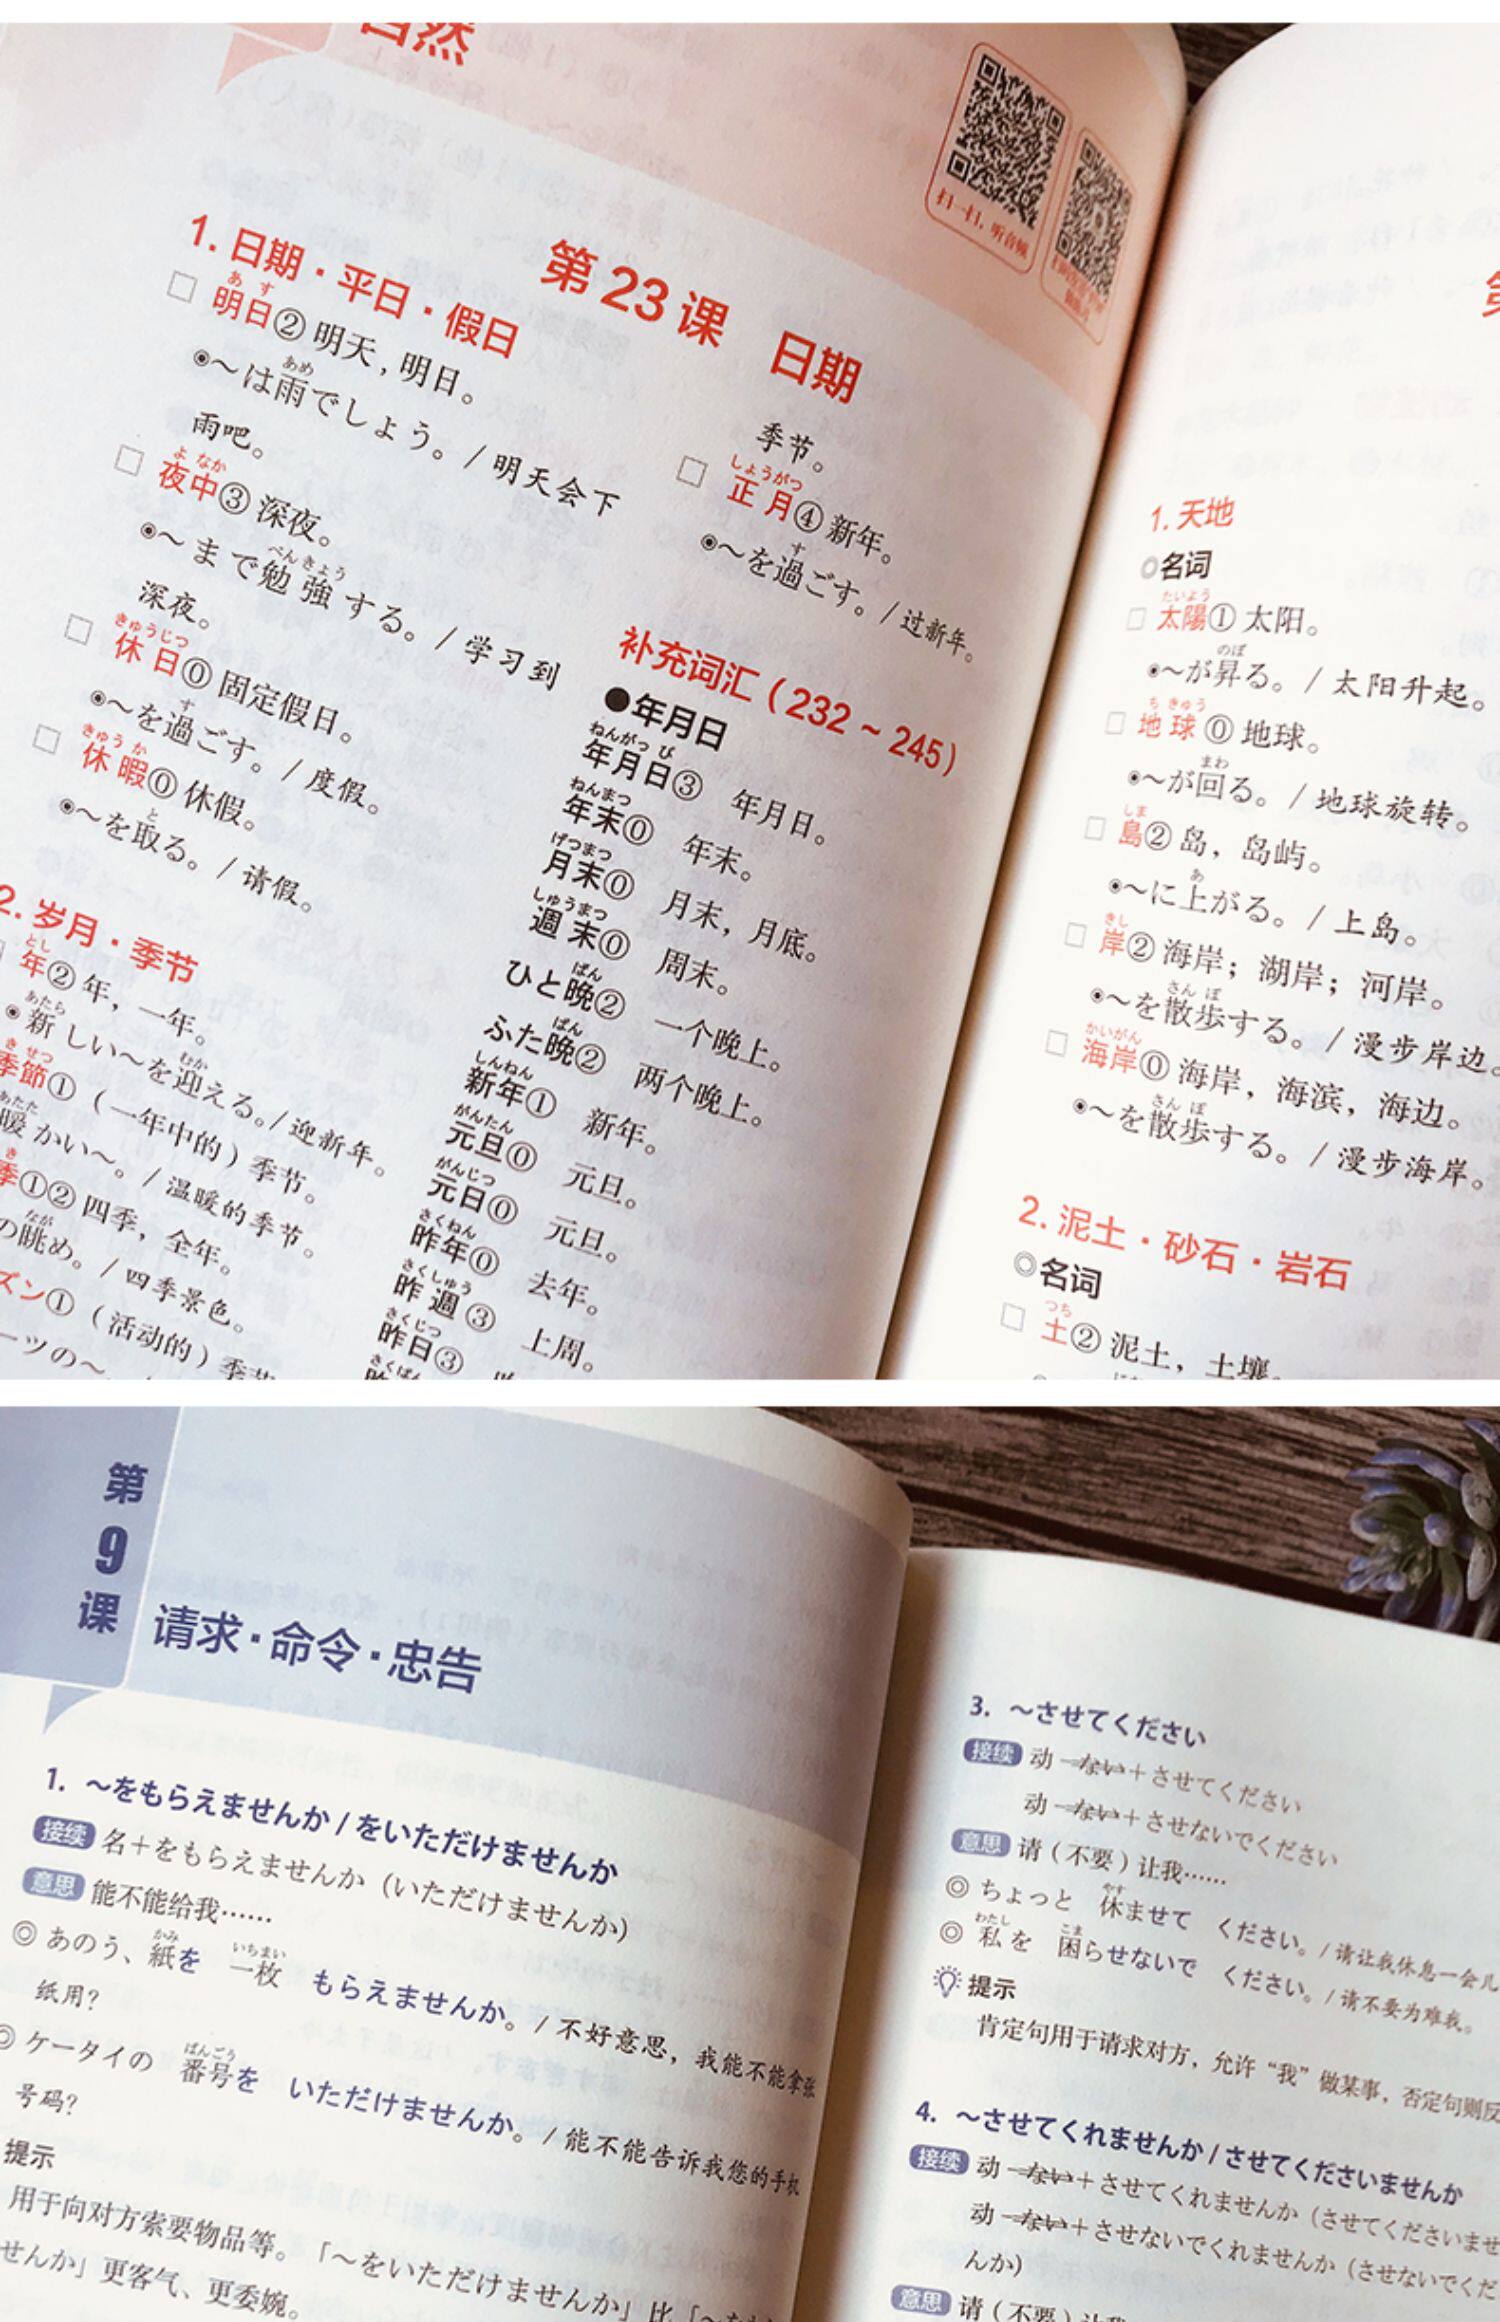 自然
扫一扫，听音频
第23课 日期
1. 日期·平日·假日
□ 明日② 明天，明日。
あす
◉～は雨でしょう。/ 明天会下
あめ
雨吧。
□ 夜中③ 深夜。
よなか
◉～まで勉強する。/ 学习到
べんきょう
深夜。
□ 休日⓪ 固定假日。
きゅうじつ
◉～を過ごす。/ 度假。
す
□ 休暇⓪ 休假。
きゅうか
◉～を取る。/ 请假。
と
2. 岁月·季节
年② 年，一年。
とし
◉新しい～を迎える。/ 迎新年。
あたら むか
季節①（一年中的）季节。
きせつ
暖かい～。/ 温暖的季节。
あたた
季①② 四季，全年。
き
の眺め。/ 四季景色。
なが
ズン①（活动的）季节
ーツの～
季节。
□ 正月④ 新年。
しょうがつ
◉～を過ごす。/ 过新年。
す
补充词汇（232～245）
●年月日
年月日③ 年月日。
ねんがっぴ
年末⓪ 年末。
ねんまつ
月末⓪ 月末，月底。
げつまつ
週末⓪ 周末。
しゅうまつ
ひと晩② 一个晚上。
ばん
ふた晩② 两个晚上。
ばん
新年① 新年。
しんねん
元旦⓪ 元旦。
がんたん
元日⓪ 元旦。
がんじつ
昨年⓪ 去年。
さくねん
昨週③ 上周。
さくしゅう
昨日③
さくじつ
さくばん
1. 天地
◎名词
□ 太陽① 太阳。
たいよう
◉～が昇る。/ 太阳升起。
のぼ
□ 地球⓪ 地球。
ちきゅう
◉～が回る。/ 地球旋转。
まわ
□ 島② 岛，岛屿。
しま
◉～に上がる。/ 上岛。
あ
□ 岸② 海岸；湖岸；河岸。
きし
◉～を散歩する。/ 漫步岸边。
さんぽ
□ 海岸⓪ 海岸，海滨，海边。
かいがん
◉～を散歩する。/ 漫步海岸。
さんぽ
2. 泥土·砂石·岩石
◎名词
□ 土② 泥土，土壤。
つち
第9课
请求·命令·忠告
1. ～をもらえませんか / をいただけませんか
接续 名＋をもらえませんか（いただけませんか）
意思 能不能给我……
◎ あのう、紙を 一枚 もらえませんか。/ 不好意思，我能不能拿张
かみ いちまい
纸用？
◎ ケータイの 番号を いただけませんか。/ 能不能告诉我您的手机
ばんごう
号码？
提示
用于向对方索要物品等。「～をいただけませんか」比「～をも
せんか」更客气、更委婉。
3. ～させてください
接续 动－ない＋させてください
动－ない＋させないでください
意思 请（不要）让我……
◎ ちょっと 休ませて ください。/ 请让我休息一会儿
やす
◎ 私を 困らせないで ください。/ 请不要为难我。
わたし こま
提示
肯定句用于请求对方，允许“我”做某事，否定句则反
4. ～させてくれませんか / させてくださいませんか
接续 动－ない＋させてくれませんか（させてくださいませ
动－ない＋させないでくれませんか（させないでくだ
んか）
意思 请（不要）让我